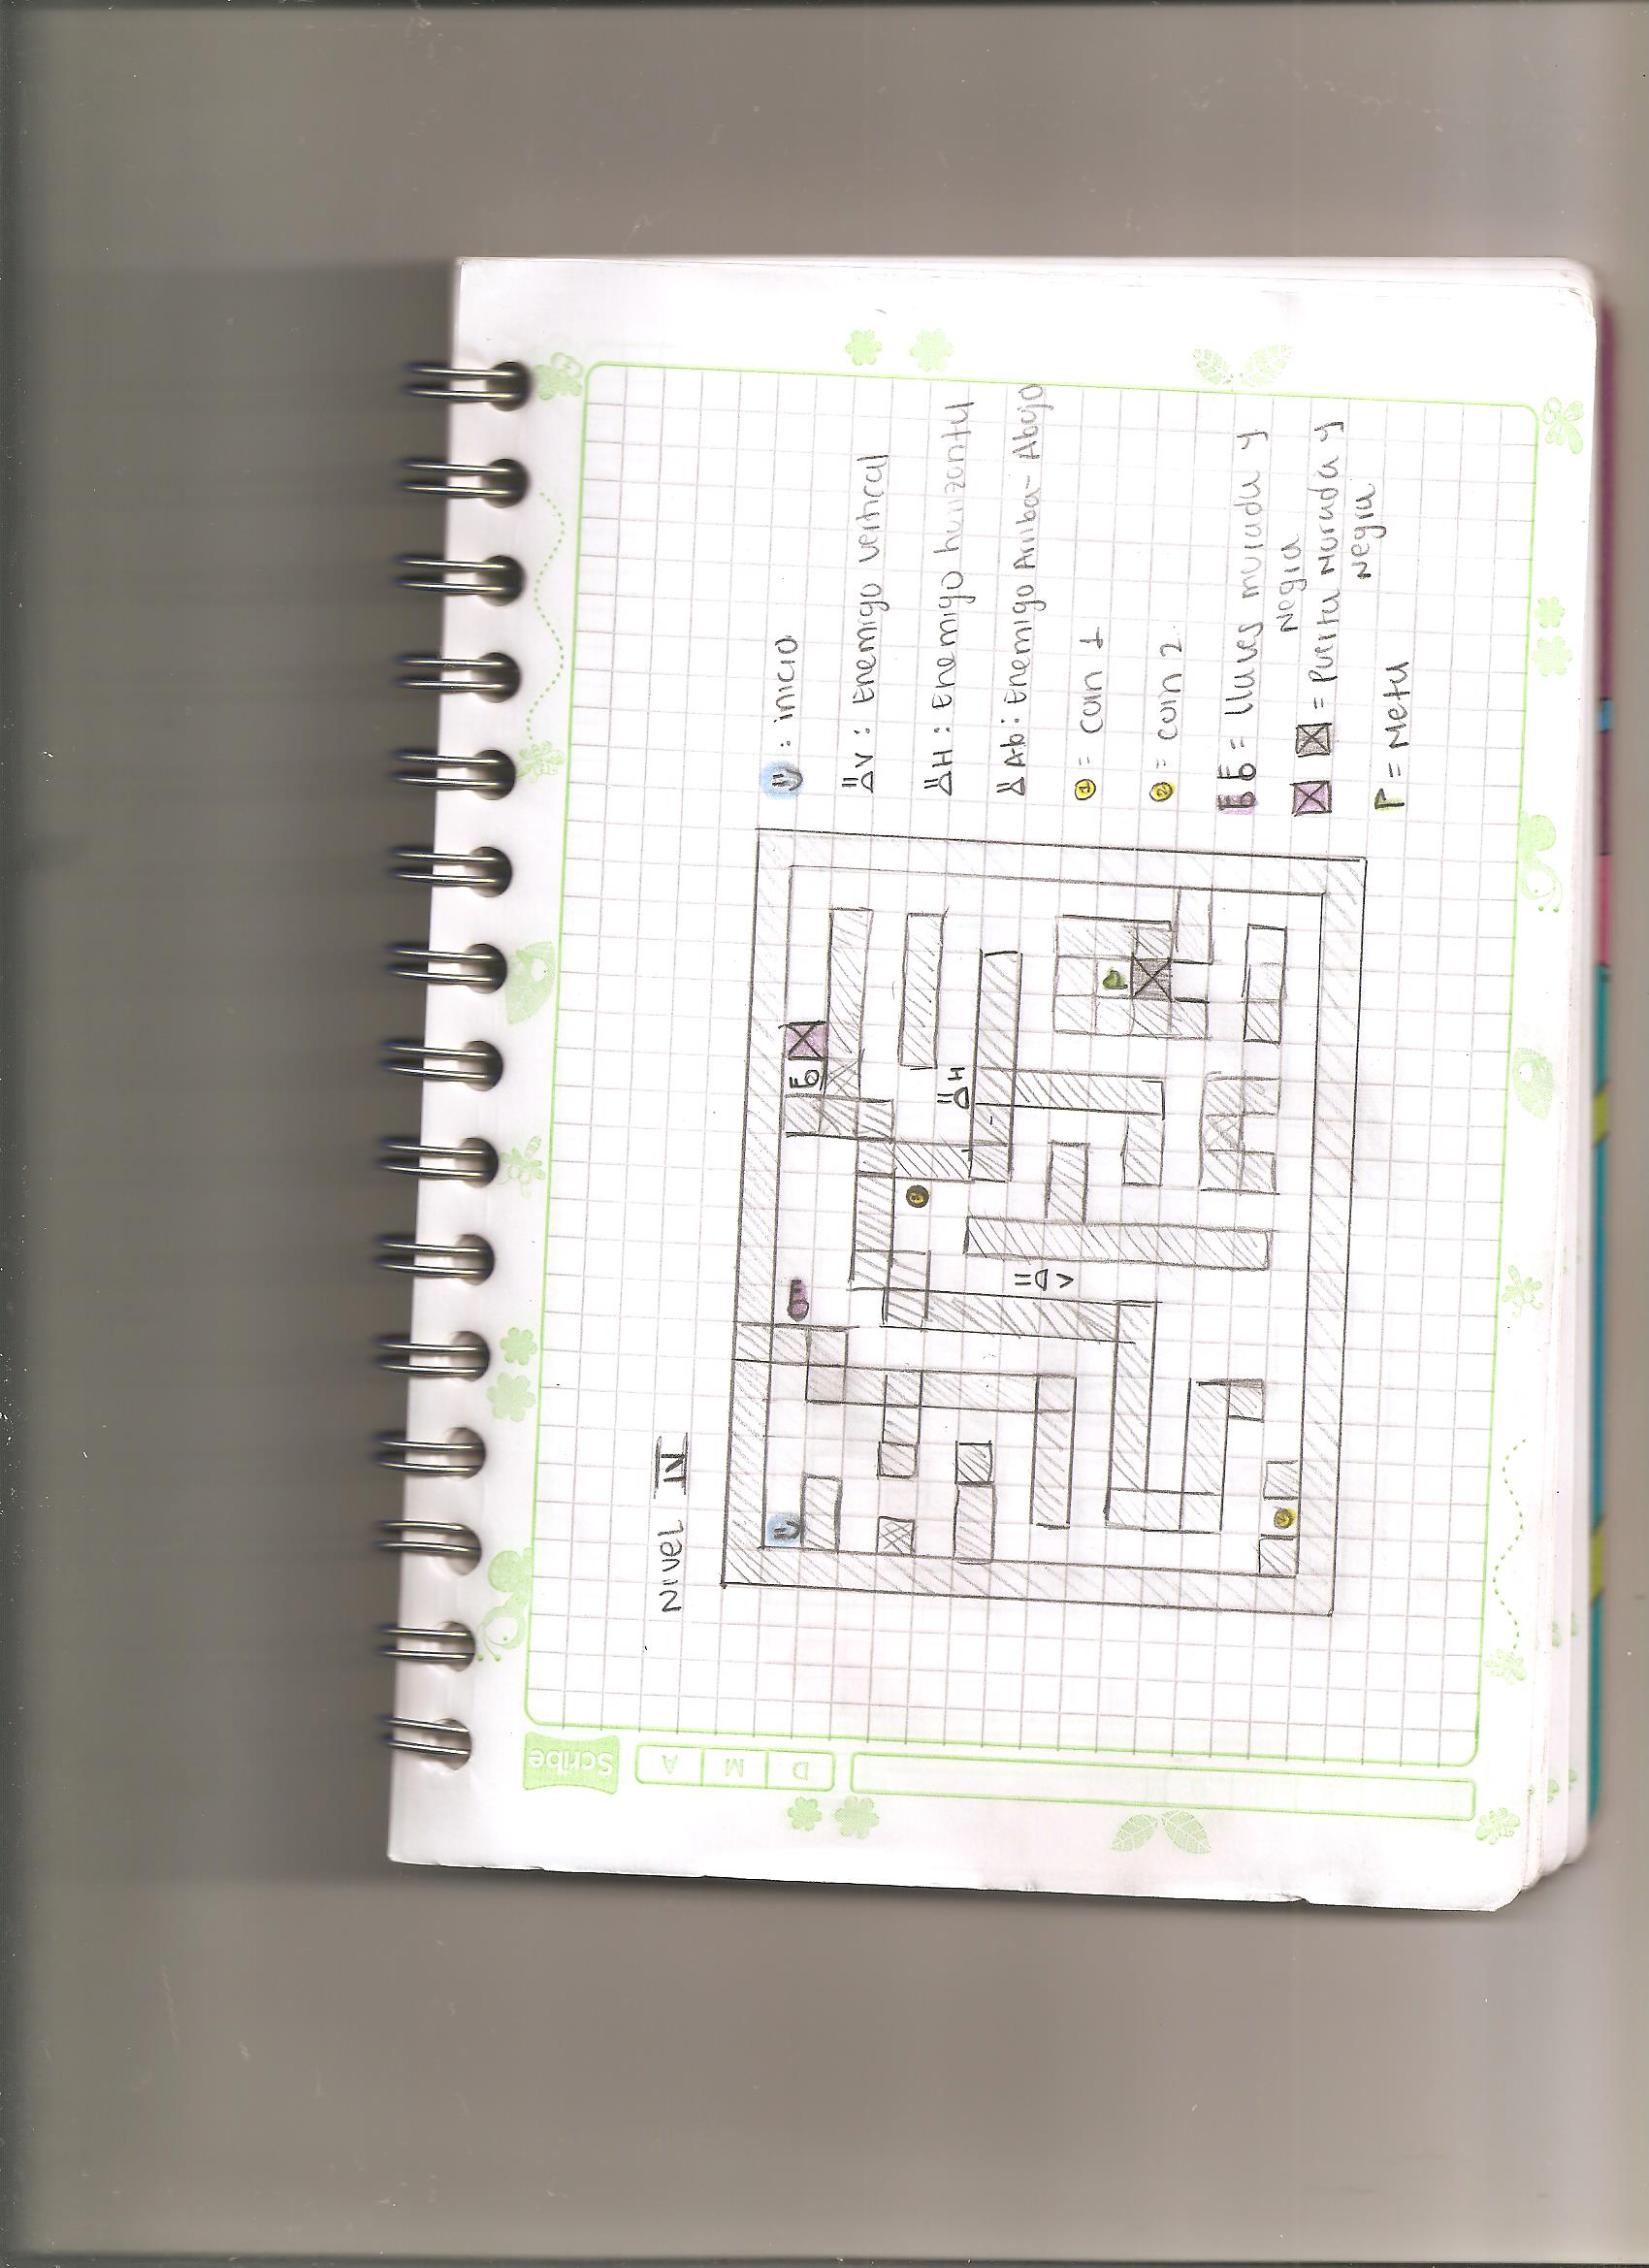 Nivel IV
: inicio
V : Enemigo vertical
H : Enemigo horizontal
Ab : Enemigo Arriba-Abajo
1 = coin 1
2 = coin 2
= llaves morada y
negra
= Puerta Morada y
Negra
= Meta
H
V
Scribe
D
M
A